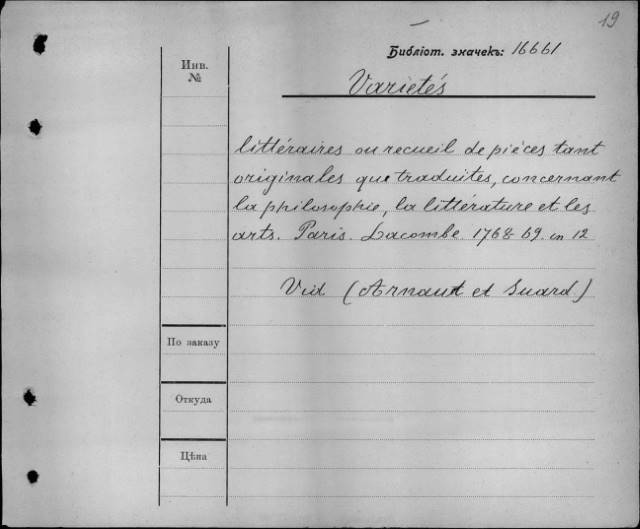 19
Библіот. значекъ: 16661
Инв.
№
Varietés
littéraires ou recueil de pièces tant
originales que traduites, concernant
la philosophie, la littérature et les
arts. Paris. Lacombe 1768-69. in 12
Vid (Arnaud et Suard)
По заказу
Откуда
Цѣна